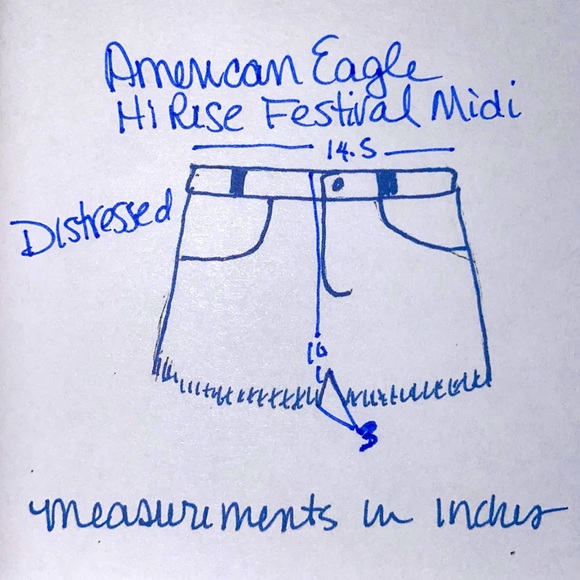 American Eagle
Hi Rise Festival Midi
14.5
Distressed
10
3
measurements in inches